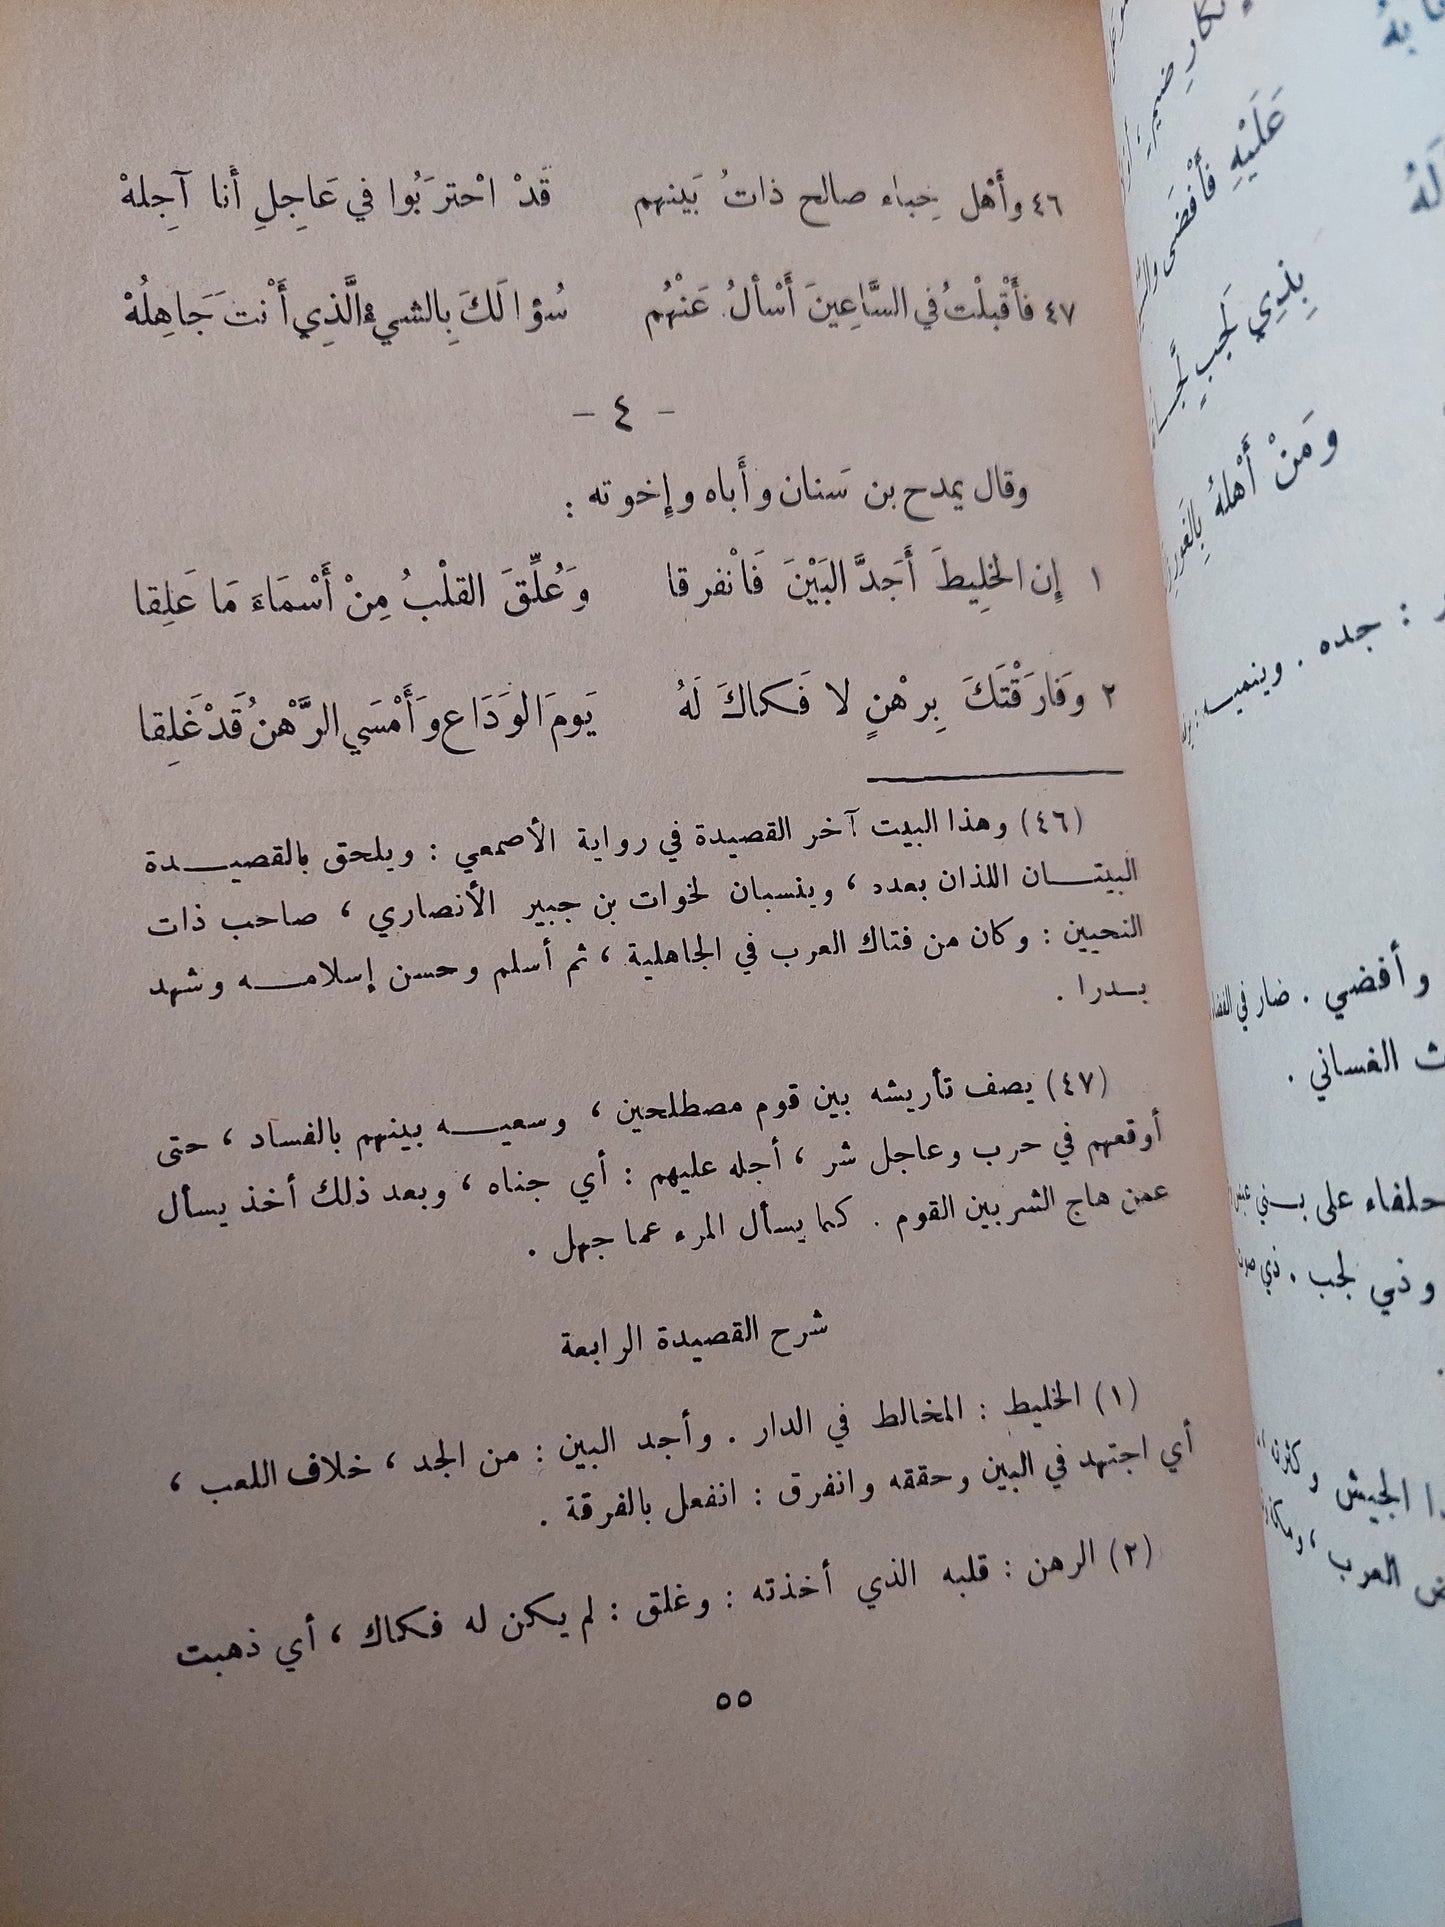 ٤٦ وأَهْل خِباء صالح ذاتُ بَينهم قَدْ احْترَبُوا في عَاجِلِ أَنا آجِلهْ
٤٧ فأَقْبلْتُ في السَّاعِينَ أَسْألُ عَنْهُم سُؤالَكَ بِالشيء الَّذِي أَنْتَ جَاهِلُهْ
- ٤ -
وقال يمدح بن سَنان وأَباه وإِخوته :
١ إِن الخلِيطَ أَجَدَّ البَيْنَ فَانْفرقا وَعُلِّقَ القلْبُ مِنْ أَسْمَاءَ مَا عَلِقا
٢ وَفارَقْتَكَ بِرهْنٍ لا فَكاكَ لَهُ يَومَ الوَدَاع وَأَمْسَي الرَّهْنُ قَدْ غَلِقا
(٤٦) وهذا البيت آخر القصيدة في رواية الأصمعي : ويلحق بالقصيدة
البيتان اللذان بعده ، وينسبان لخوات بن جبير الأنصاري ، صاحب ذات
النحيين : وكان من فتاك العرب في الجاهلية ، ثم أسلم وحسن إسلامه وشهد
بدرا .
(٤٧) يصف تأريشه بين قوم مصطلحين ، وسعيه بينهم بالفساد ، حتى
أوقعهم في حرب وعاجل شر ، أجله عليهم : أي جناه ، وبعد ذلك أخذ يسأل
عمن هاج الشر بين القوم . كما يسأل المرء عما جهل .
شرح القصيدة الرابعة
(١) الخليط : المخالط في الدار . وأجد البين : من الجد ، خلاف اللعب ،
أي اجتهد في البين وحققه وانفرق : انفعل بالفرقة .
(٢) الرهن : قلبه الذي أخذته : وغلق : لم يكن له فكاك ، أي ذهبت
٥٥
عَلَيْهِ فأَفْضَى
بِذِي لَجبٍ
ومَنْ أَهْلهُ
: جده .
وأفضي . ضار في
الغساني .
حلفاء على بني
وذي لجب . ذي
الجيش وكثرته
العرب ،